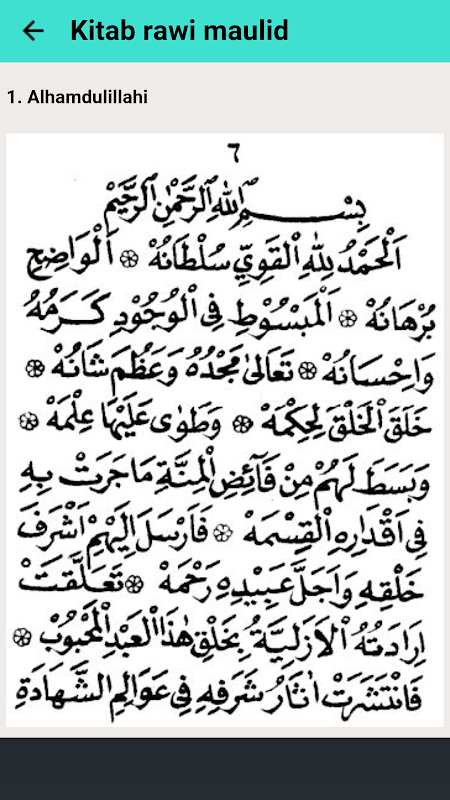 Kitab rawi maulid
1. Alhamdulillahi
٦
بِسْمِ اللهِ الرَّحْمٰنِ الرَّحِيْمِ
اَلْحَمْدُ لِلّٰهِ الْقَوِيِّ سُلْطَانُهْ ۞ اَلْوَاضِحِ
بُرْهَانُهْ ۞ اَلْمَبْسُوْطِ فِى الْوُجُوْدِ كَرَمُهُ
وَاِحْسَانُهْ ۞ تَعَالىٰ مَجْدُهُ وَعَظُمَ شَانُهْ ۞
خَلَقَ الْخَلْقَ لِحِكْمَهْ ۞ وَطَوٰى عَلَيْهَا عِلْمَهْ ۞
وَبَسَطَ لَهُمْ مِنْ فَآئِضِ الْمِنَّةِ مَاجَرَتْ بِهِ
فِى اَقْدَارِهِ الْقِسْمَهْ ۞ فَاَرْسَلَ اِلَيْهِمْ اَشْرَفَ
خَلْقِهِ وَاَجَلَّ عَبِيْدِهِ رَحْمَهْ ۞ تَعَلَّقَتْ
اِرَادَتُهُ الْاَزَلِيَّةُ بِخَلْقِ هٰذَا الْعَبْدِ الْمَحْبُوْبِ ۞
فَانْتَشَرَتْ اٰثَارُ شَرَفِهِ فِى عَوَالِمِ الشَّهَادَةِ